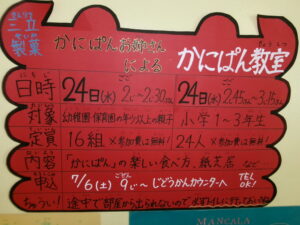 三立
製菓
かにぱんお姉さん
による
かにぱん教室
日時 24日(水) 2:00~2:30 24日(水) 2:45~3:15
対象 幼稚園・保育園の年少以上の親子 小学1~3年生
定員 16組 ※参加費は無料! 24人 ※参加費は無料!
内容 「かにぱん」の楽しい食べ方、紙芝居 など
申込 7/6(土) 9:00~ じどうかんカウンターへ TEL OK!
ちゅうい! 途中で部屋から出られないので
MANCALA